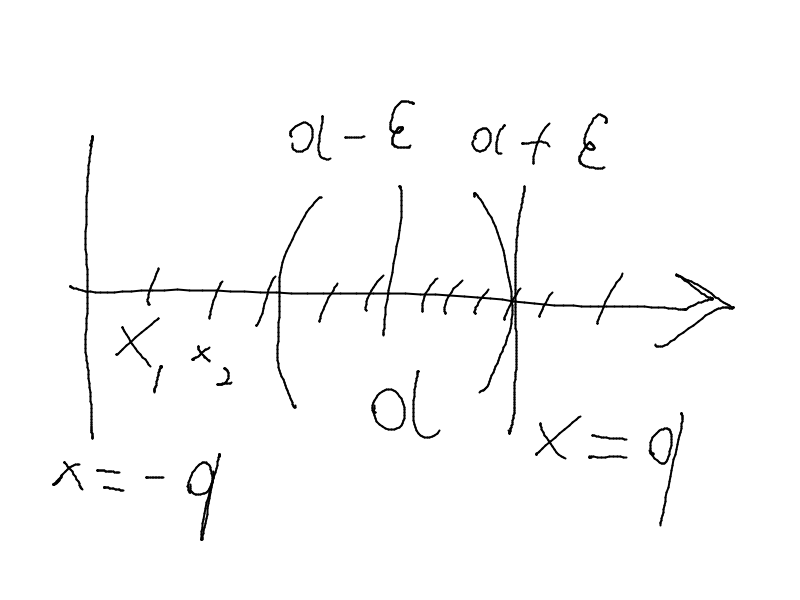 a - ε a + ε
x₁ x₂
a
x = - q x = q